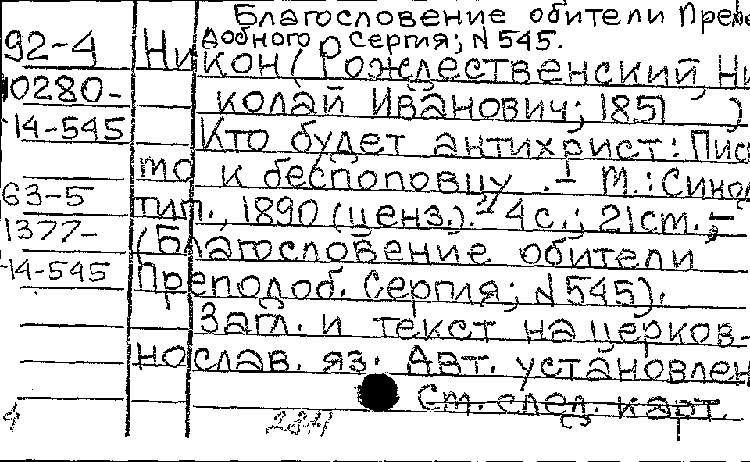 Благословение обители Препо
добного Сергия; N 545.
92-4 Никон (Рождественский, Ни
10280- колай Иванович; 1851 )
14-545 Кто будет антихрист: Пис
мо к беспоповцу. - М.: Синод
63-5 тип., 1890 (ценз.). - 4 с.; 21 см. -
1377- (Благословение обители
14-545 Преподоб. Сергия; N 545).
Загл. и текст на церков-
нослав. яз. Авт. установлен
См. след. карт.